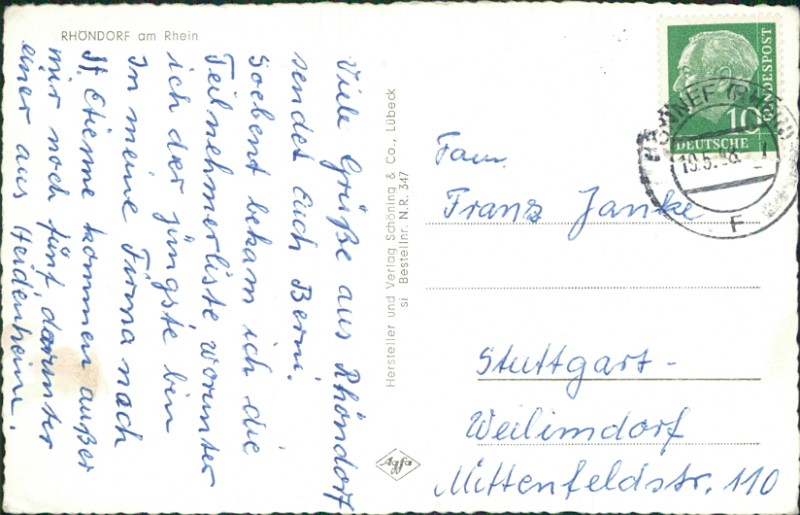 RHÖNDORF am Rhein
Viele Grüße aus Rhöndorf
sendet Euch Berni.
Soebent bekam ich die
Teilnehmerliste worunter
ich der jüngste bin
In meine Firma nach
St. Etienne kommen außer
mir noch fünf darunter
einer aus Heidenheim.
Hersteller und Verlag Schöning & Co., Lübeck
si Bestellnr. N.R. 347
Agfa
DEUTSCHE
BUNDESPOST
10
HONNEF (RHEIN)
10.5.58
F
Fam.
Franz Janke
Stuttgart-
Weilimdorf
Mittenfeldstr. 110